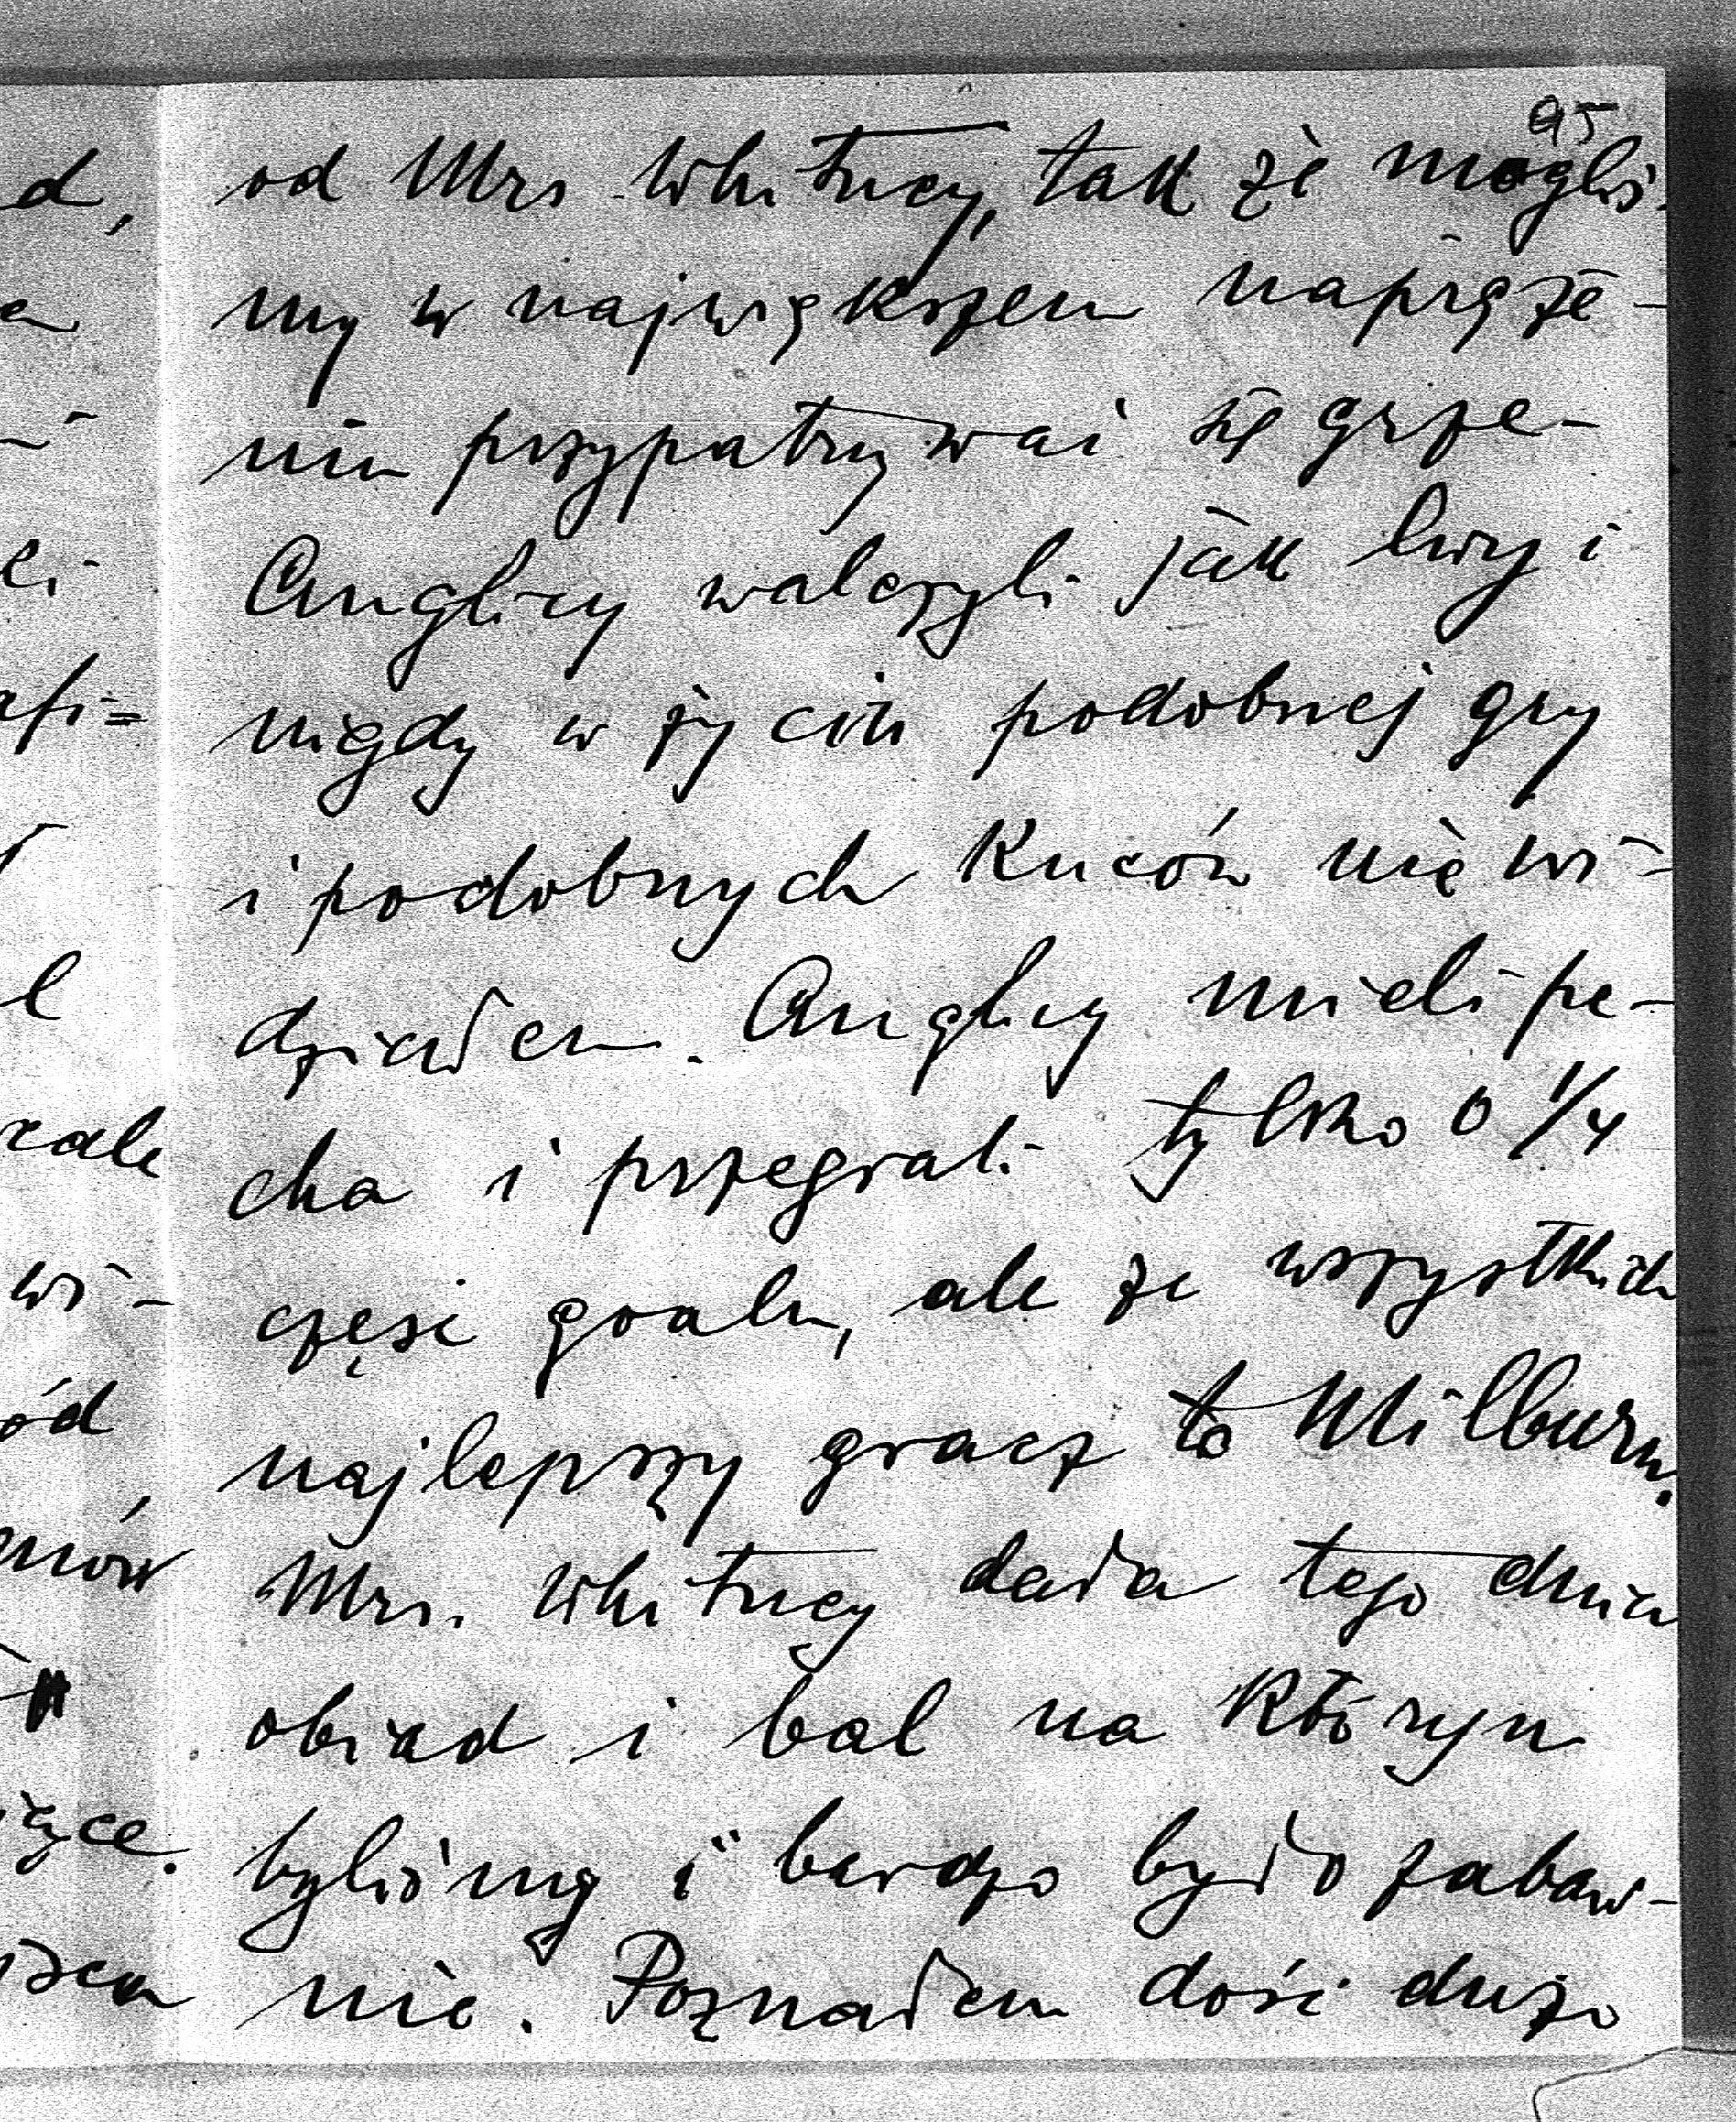 95
od Mrs Whitney, tak że mogliś-
my w największem napręże-
niu przypatrywać się grze-
Anglicy walczyli jak lwy i
nigdy w życiu podobnej gry
i podobnych kuców nie wi-
działem. Anglicy mieli pe-
cha i przegrali tylko o 1/4
częśc goalu, ale ze wszystkich
najlepszy gracz to Milburn.
Mrs. Whitney dała tego dnia
obiad i bal na którym
byliśmy i bardzo było zabaw-
nie. Poznałem dość dużo